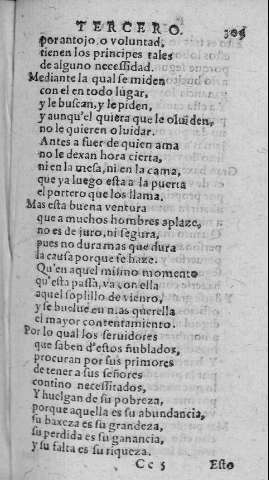 TERCERO.
por antojo, o voluntad,
tienen los principes tales
de alguno necessidad.
Mediante la qual se miden
con el en todo lugar,
y le buscan, y le piden,
y aunqu'el quiera que le oluiden,
no le quieren oluidar.
Antes a fuer de quien ama
no le dexan hora cierta,
ni en la mesa, ni en la cama,
que ya luego esta a la puerta
el portero que los llama.
Mas esta buena ventura
que a muchos hombres aplaze,
no es de juro, ni segura,
pues no dura mas que dura
la causa porque se haze.
Qu'en aquel mismo momento
qu'esta passa, va con ella
aquel soplillo de viento,
y se buelue en mas querella
el mayor contentamiento.
Por lo qual los seruidores
que saben d'estos ñublados,
procuran por sus primores
de tener a sus señores
contino necessitados,
Y huelgan de su pobreza,
porque aquella es su abundancia,
su baxeza es su grandeza,
su perdida es su ganancia,
y su falta es su riqueza.
Cc 5 Esto